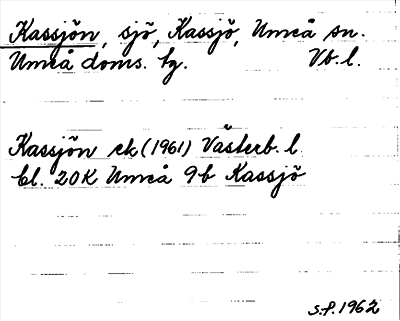 Kassjön, sjö, Kassjö, Umeå sn.
Umeå doms. tg. Vb. l.
Kassjön ek (1961) Västerb. l.
bl. 20K Umeå 9b Kassjö
S.P. 1962